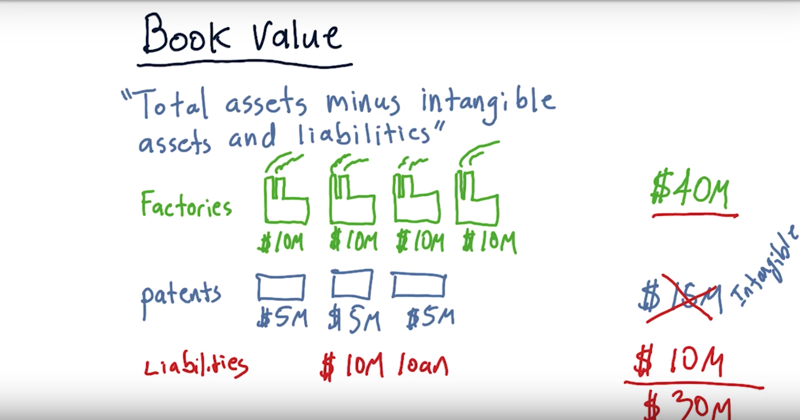 Book Value
"Total assets minus intangible
assets and liabilities"
Factories
$10M $10M $10M $10M
$40M
patents
$5M $5M $5M
$15M Intangible
Liabilities $10M loan $10M
$30M